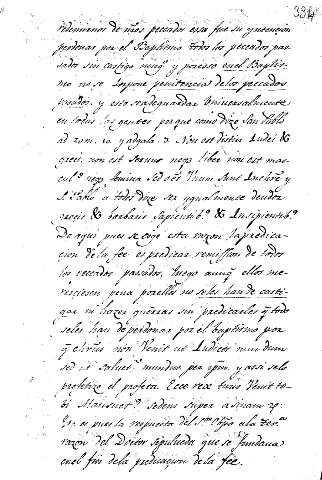 334
redemirnos de nros peccados essa fue su yntencion
perdonar por el Baptismo todos los peccados pas
sados sin castigo ningo y por esso en el Baptis
mo no se Impone penitencia de los peccados
passados. y esto se a de guardar Uniuersalmente
en todas las gentes porque como dize San Pablo
ad Rom. 10 Non est distin Iudei &
greci. non est seruus neqz liber non est mas
cul9 neqz femina sed oẽs Unum sunt In chro y
S. Pablo a todos dize ser ygualmente deudor
grecis & barbaris sapientib9 & Insipientib9.
De aqui pues se coge esta razon la predica
cion de la fee es predicar remission de todos
los peccados passados, luego aunq̃ ellos me
resciesen pena por ellos no se les han de casti
gar ni hazer guerras sin predicarles q̃ todo
se les han de perdonar por el baptismo por
q̃ chrus non Venit ut Iudicet mundum
sed ut saluet mundus per ipm. y assi solo
profetizo el profeta. Ecce rex tuus Venit ti
bi Mansuet9 sedens super asinam
Esta es pues la respuesta del sor Obpo a la terca
razon del Doctor sepulueda que se fundaua
en el fin de la predicacion de la fee.